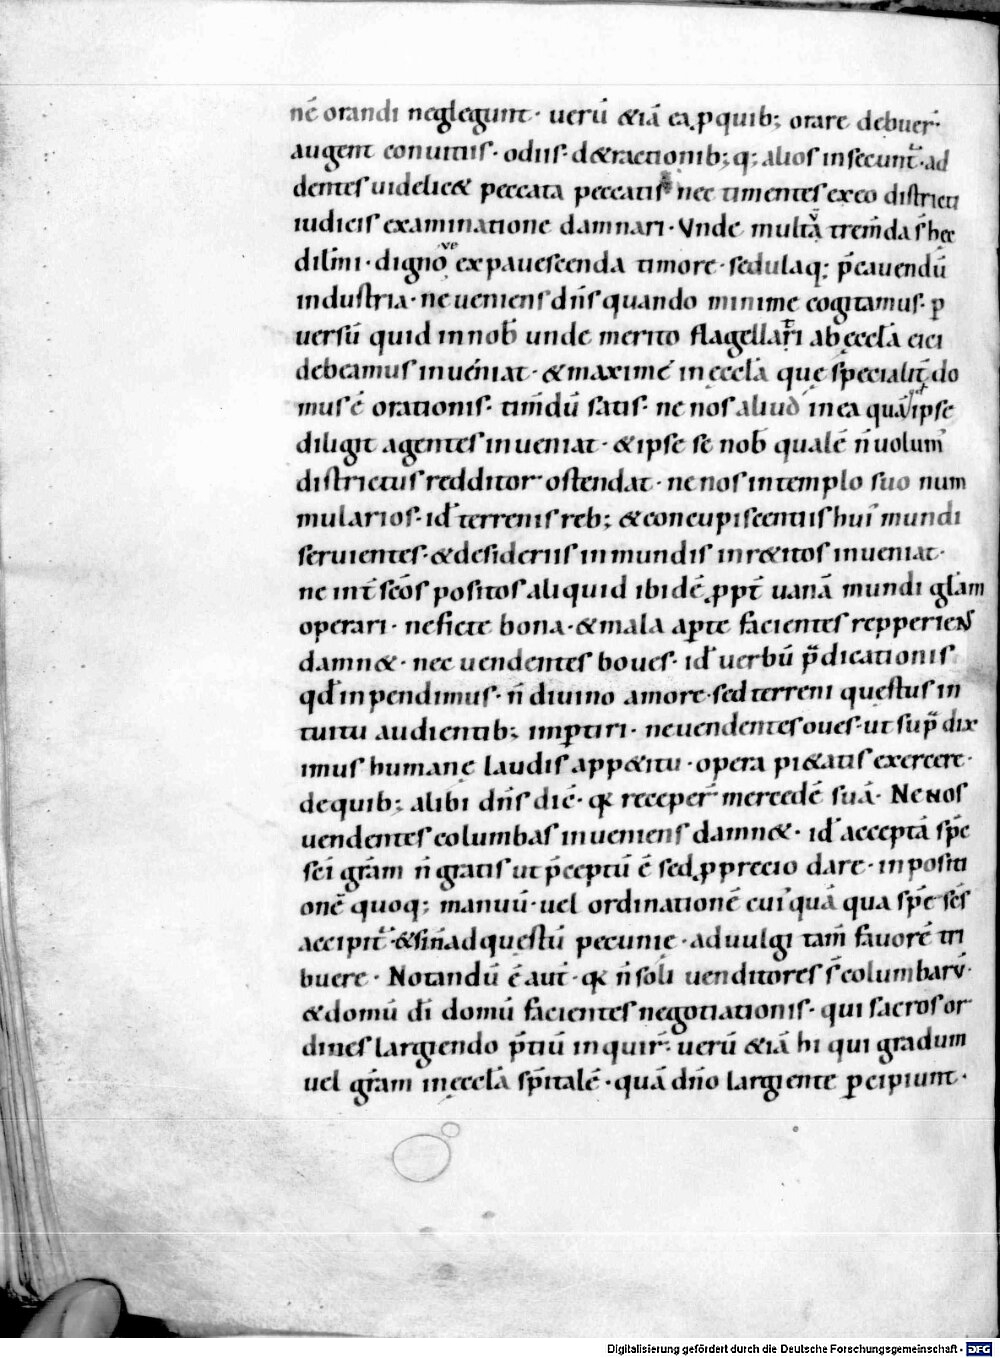 nē orandi neglegunt · uerū &iā ea ꝑ quib; orare debuer̄ ·
augent conuitiis · odiis · d&ractionib; q; alios insecunt̄ · ad
dentes uidelic& peccata peccatis nec timentes ex eo districti
iudicis examinatione damnari · Vnde multū tremda s̄ hęc
dilm̄i · digno ve expauescenda timore · sedulaq; p̄cauendū
industria · ne ueniens dn̄s quando minime cogitamus · ꝑ
uersū quid in nob̄ unde merito flagellari & ab ęccła eici
debeamus inueniat · & maximē in ęccła que specialit̄ do
mus ē orationis · tim̄dū satis · ne nos aliud in ea quā ipse
diligit agentes inueniat · & ipse se nob̄ qualē n̄ uolum᾽
districtus redditor ostendat · ne nos in templo suo num
mularios · id ̄ terrenis reb; & concupiscentiis hui᾽ mundi
seruientes · & desideriis inmundis inr&itos inueniat ·
ne int̄ sc̄os positos aliquid ibidē ꝓpt̄ uanā mundi głam
operari · ne ficte bona · & mala aꝑte facientes repperiens
damn& · nec uendentes boues · id ̄ uerbū p̄dicationis
qd̄ inpendimus · n̄ diuino amore · sed terreni questus in
tuitu audientib; imꝑtiri · ne uendentes oues · ut sup̄ dix
imus humanę laudis app&itu · opera pi&atis exercere ·
de quib; alibi dn̄s dic̄ · qꝛ receper̄ mercedē suā · Ne nos
uendentes columbas inueniens damn& · id ̄ acceptā sp̄c
sc̄i gr̄am n̄ gratis ut p̄ceptū ē sed ꝓ precio dare · inpositi
onē quoq; manuū · uel ordinationē cui᾽quā qua sp̄c sc̄s
accipit̄ · & si n̄ ad questū pecunię · ad uulgi tam̄ fauorē tri
buere · Notandū ē aut̄ · qꝛ n̄ soli uenditores s̄ columbarū ·
& domū di̅ domū facientes negotiationis · qui sacros or
dines largiendo p̄tiū inquir̄ · uerū &iā hi qui gradum
uel gr̄am in ęccła sp̄italē · quā dn̄o largiente ꝑcipiunt ·
Digitalisierung gefördert durch die Deutsche Forschungsgemeinschaft - DFG